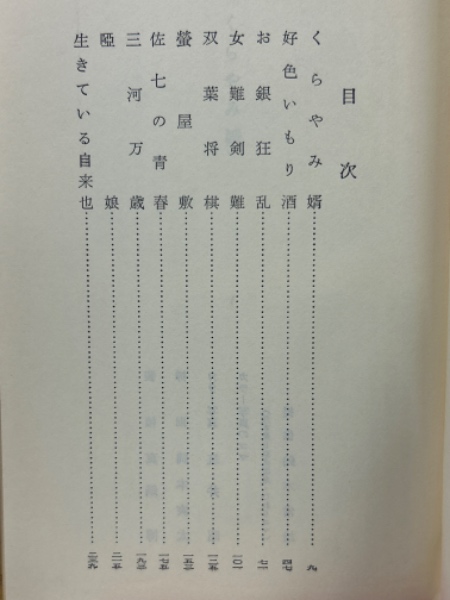 目次
くらやみ婿……九
好色いもり酒……四七
お銀狂乱……七一
女難剣難……一〇一
双葉将棋……一二五
螢屋敷……一五三
佐七の青春……一七五
三河万歳……一九三
啞娘……二一五
生きている自来也……二三九